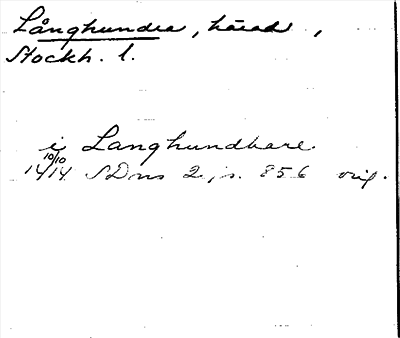 Långhundra, härad,
Stockh. l.
i Langhundhare.
10/10
1414 SDns 2, s. 856 orig.